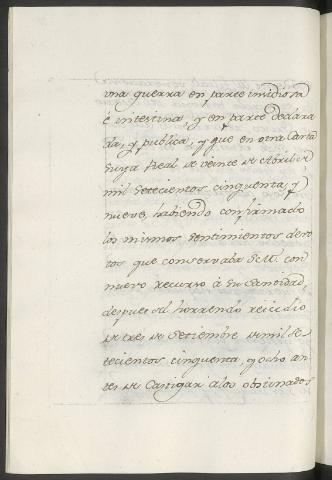 una guerra en parte insidiosa
è intestina, y en parte declara
da, y publica, y que en otra Carta
suya Real de veinte de Abril de
mil setecientos cinquenta, y
nueve, habiendo confirmado
los mismos sentimientos devo
tos que conservaba S. M. con
nuevo recurso à Su Santidad,
despues del horrendo reicidio
de tres de Setiembre de mil se
tecientos cinquenta, y ocho an
tes de Castigar a los obstinados